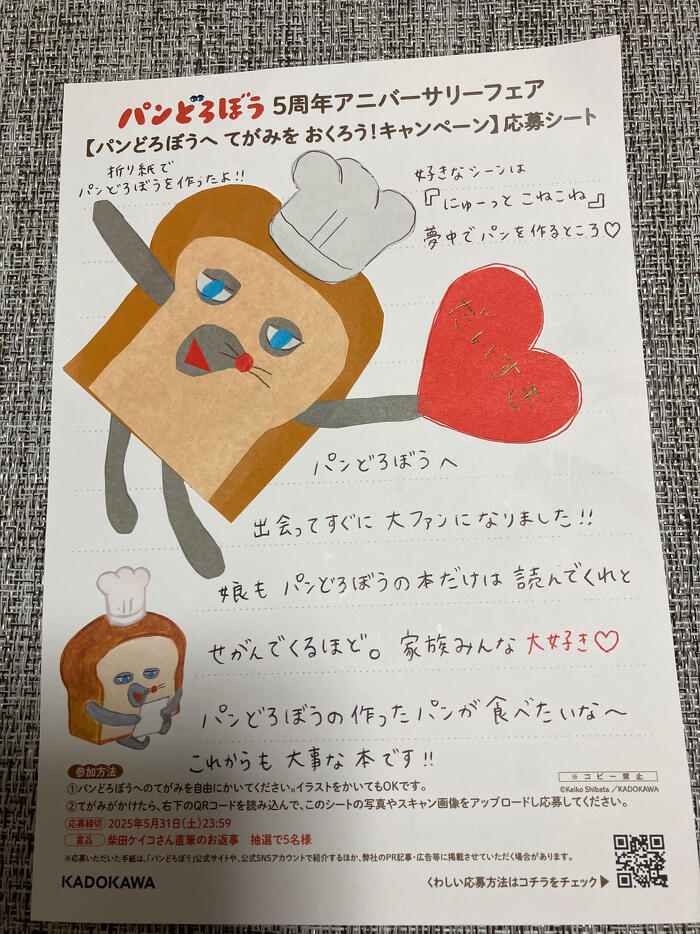 パンどろぼう 5周年アニバーサリーフェア
【パンどろぼうへ てがみを おくろう!キャンペーン】応募シート
折り紙で
パンどろぼうを作ったよ!!
好きなシーンは
『にゅーっと こねこね』
夢中でパンを作るところ♡
だいすき
パンどろぼうへ
出会ってすぐに 大ファンになりました!!
娘も パンどろぼうの本だけは 読んでくれと
せがんでくるほど。 家族みんな 大好き♡
パンどろぼうの作ったパンが 食べたいな〜
これからも 大事な本です!!
参加方法
※コピー禁止
©Keiko Shibata/KADOKAWA
①パンどろぼうへのてがみを自由にかいてください。イラストをかいてもOKです。
②てがみがかけたら、右下のQRコードを読み込んで、このシートの写真やスキャン画像をアップロードし応募してください。
応募締切 2025年5月31日(土)23:59
賞品 柴田ケイコさん直筆のお返事 抽選で5名様
※応募いただいた手紙は、「パンどろぼう」公式サイトや、公式SNSアカウントで紹介するほか、弊社のPR記事・広告等に掲載させていただく場合があります。
KADOKAWA
くわしい応募方法はコチラをチェック▶